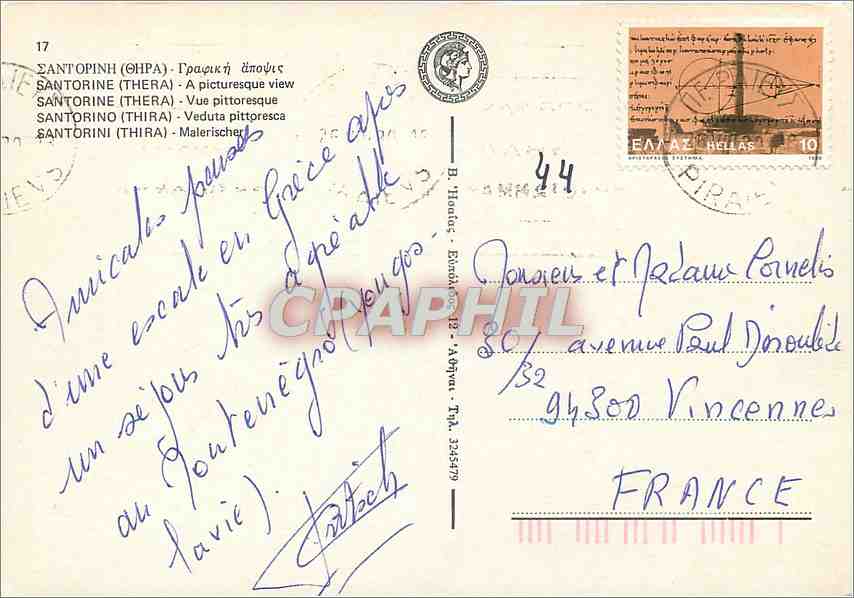 17
ΣΑΝΤΟΡΙΝΗ (ΘΗΡΑ) - Γραφικὴ ἄποψις
SANTORINE (THERA) - A picturesque view
SANTORINE (THERA) - Vue pittoresque
SANTORINO (THIRA) - Veduta pittoresca
SANTORINI (THIRA) - Malerischer
Amicales pensées
d'une escale en Grèce après
un séjour très agréable
au Monténégro (Yougos-
lavie).
Β. Ἡσαΐας - Εὐπόλιδος 12 - Ἀθῆναι - Τηλ. 3245479
44
ΕΛΛΑΣ HELLAS 10
PIRAIEVS
Monsieur et Madame Cornelis
30/32 avenue Paul Déroulède
94300 Vincennes
FRANCE
CPAPHIL